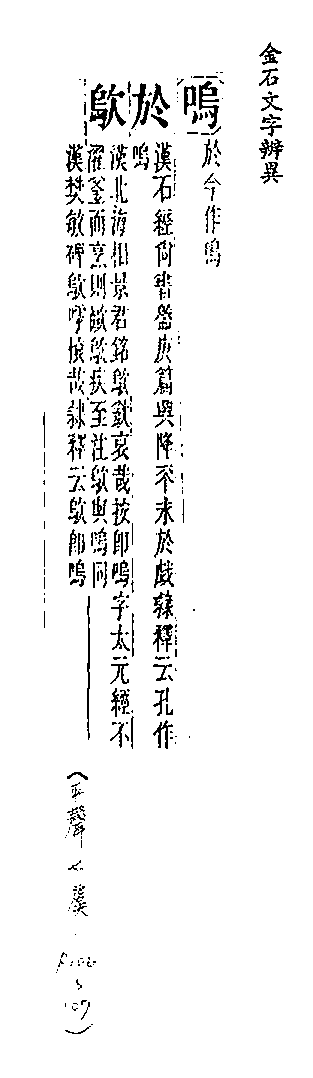 金石文字辨異
嗚 於 歍
於今作嗚
漢石經尚書盤庚篇興降不永於戲隸釋云孔作
嗚
漢北海相景君銘歍歔哀哉按即嗚字太元經不
濯釜而烹則歐歍疾至注歍與嗚同
漢樊敏碑歍呼懷哉隸釋云歍即嗚
(平聲七虞
P.106
107)